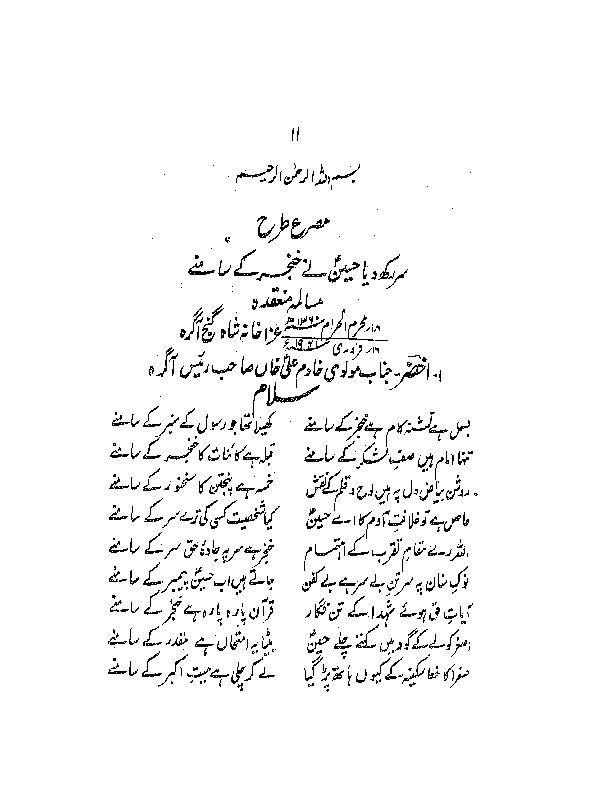 ۱۱
بسم اللہ الرحمٰن الرحیم
مصرع طرح
سر رکھ دیا حسینؑ نے خنجر کے سامنے
مسالمہ منعقدہ
۱۸ محرم الحرام ۱۳۶۰ھ
عزا خانہ شاہ گنج آگرہ
۱۶ فروری
۱۔ اخضر۔ جناب مولوی خادم علی خاں صاحب رئیس آگرہ
سلام
بسمل ہے تشنہ کام ہے خنجر کے سامنے کھیلا تھا جو رسول کے منبر کے سامنے
تنہا امام ہیں صفِ لشکر کے سامنے قبلہ ہے کائنات کا خنجر کے سامنے
روشن بیاضِ دل پہ ہیں لوح و قلم کے نقش خمسہ ہے پنجتن کا سخنور کے سامنے
خاص ہے تو خلافتِ آدم کا اے حسینؑ کیا شخصیت کسی کی ترے سر کے سامنے
اللہ رے مقامِ تقرب کے اہتمام خنجر ہے سر پہ جادۂ حق سر کے سامنے
نوکِ سناں پہ سر تنِ بے سر ہے بے کفن جاتے ہیں اب حسینؑ پیمبر کے سامنے
آیاتِ حق ہوئے شہدا کے تن فگار قرآن پارہ پارہ ہے خنجر کے سامنے
اصغر کو لے کے گود میں کہنے چلے حسینؑ بیٹا یہ امتحاں ہے مقدر کے سامنے
صغرا کا خط سکینہ کے کیوں ہاتھ پڑ گیا لے کر چلی ہے میتِ اکبر کے سامنے